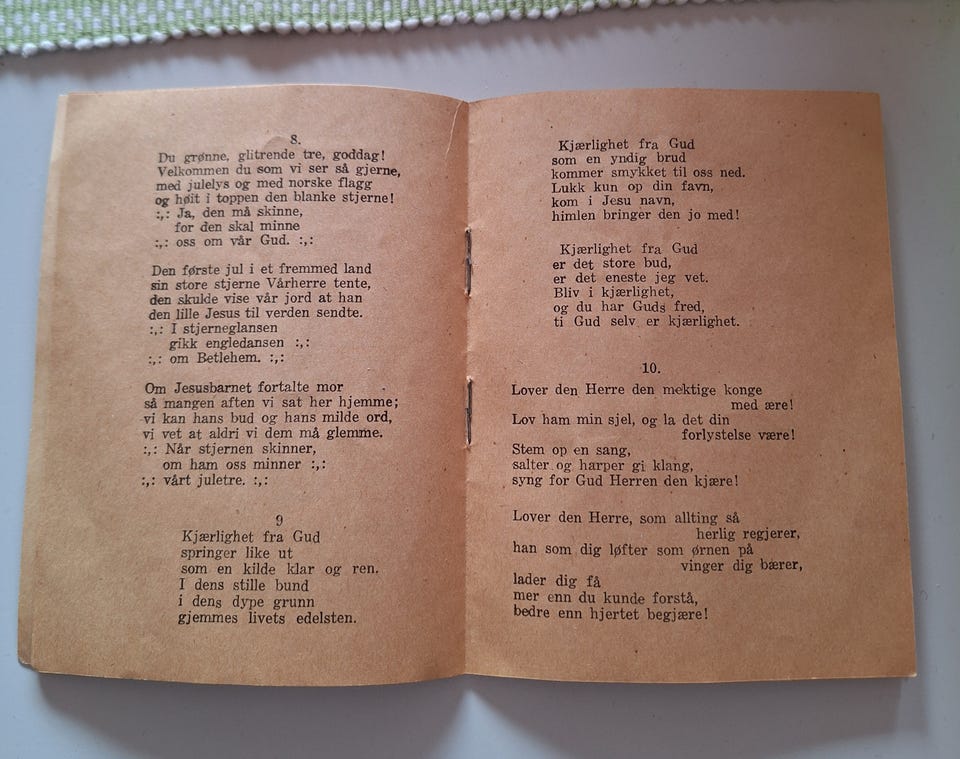 8.
Du grønne, glitrende tre, goddag!
Velkommen du som vi ser så gjerne,
med julelys og med norske flagg
og høit i toppen den blanke stjerne!
:,: Ja, den må skinne,
for den skal minne
:,: oss om vår Gud. :,:
Den første jul i et fremmed land
sin store stjerne Vårherre tente,
den skulde vise vår jord at han
den lille Jesus til verden sendte.
:,: I stjerneglansen
gikk engledansen :,:
:,: om Betlehem. :,:
Om Jesusbarnet fortalte mor
så mangen aften vi sat her hjemme;
vi kan hans bud og hans milde ord,
vi vet at aldri vi dem må glemme.
:,: Når stjernen skinner,
om ham oss minner :,:
:,: vårt juletre. :,:
9
Kjærlighet fra Gud
springer like ut
som en kilde klar og ren.
I dens stille bund
i dens dype grunn
gjemmes livets edelsten.
Kjærlighet fra Gud
som en yndig brud
kommer smykket til oss ned.
Lukk kun op din favn,
kom i Jesu navn,
himlen bringer den jo med!
Kjærlighet fra Gud
er det store bud,
er det eneste jeg vet.
Bliv i kjærlighet,
og du har Guds fred,
ti Gud selv er kjærlighet.
10.
Lover den Herre den mektige konge
med ære!
Lov ham min sjel, og la det din
forlystelse være!
Stem op en sang,
salter og harper gi klang,
syng for Gud Herren den kjære!
Lover den Herre, som allting så
herlig regjerer,
han som dig løfter som ørnen på
vinger dig bærer,
lader dig få
mer enn du kunde forstå,
bedre enn hjertet begjære!